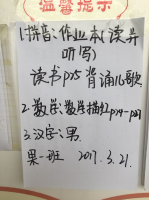 温馨提示
1.拼音:作业本(读并
听写)
读书P25背诵儿歌
2.数学:数学描红P19-P21
3.汉字:男
果一班 2017.3.21.